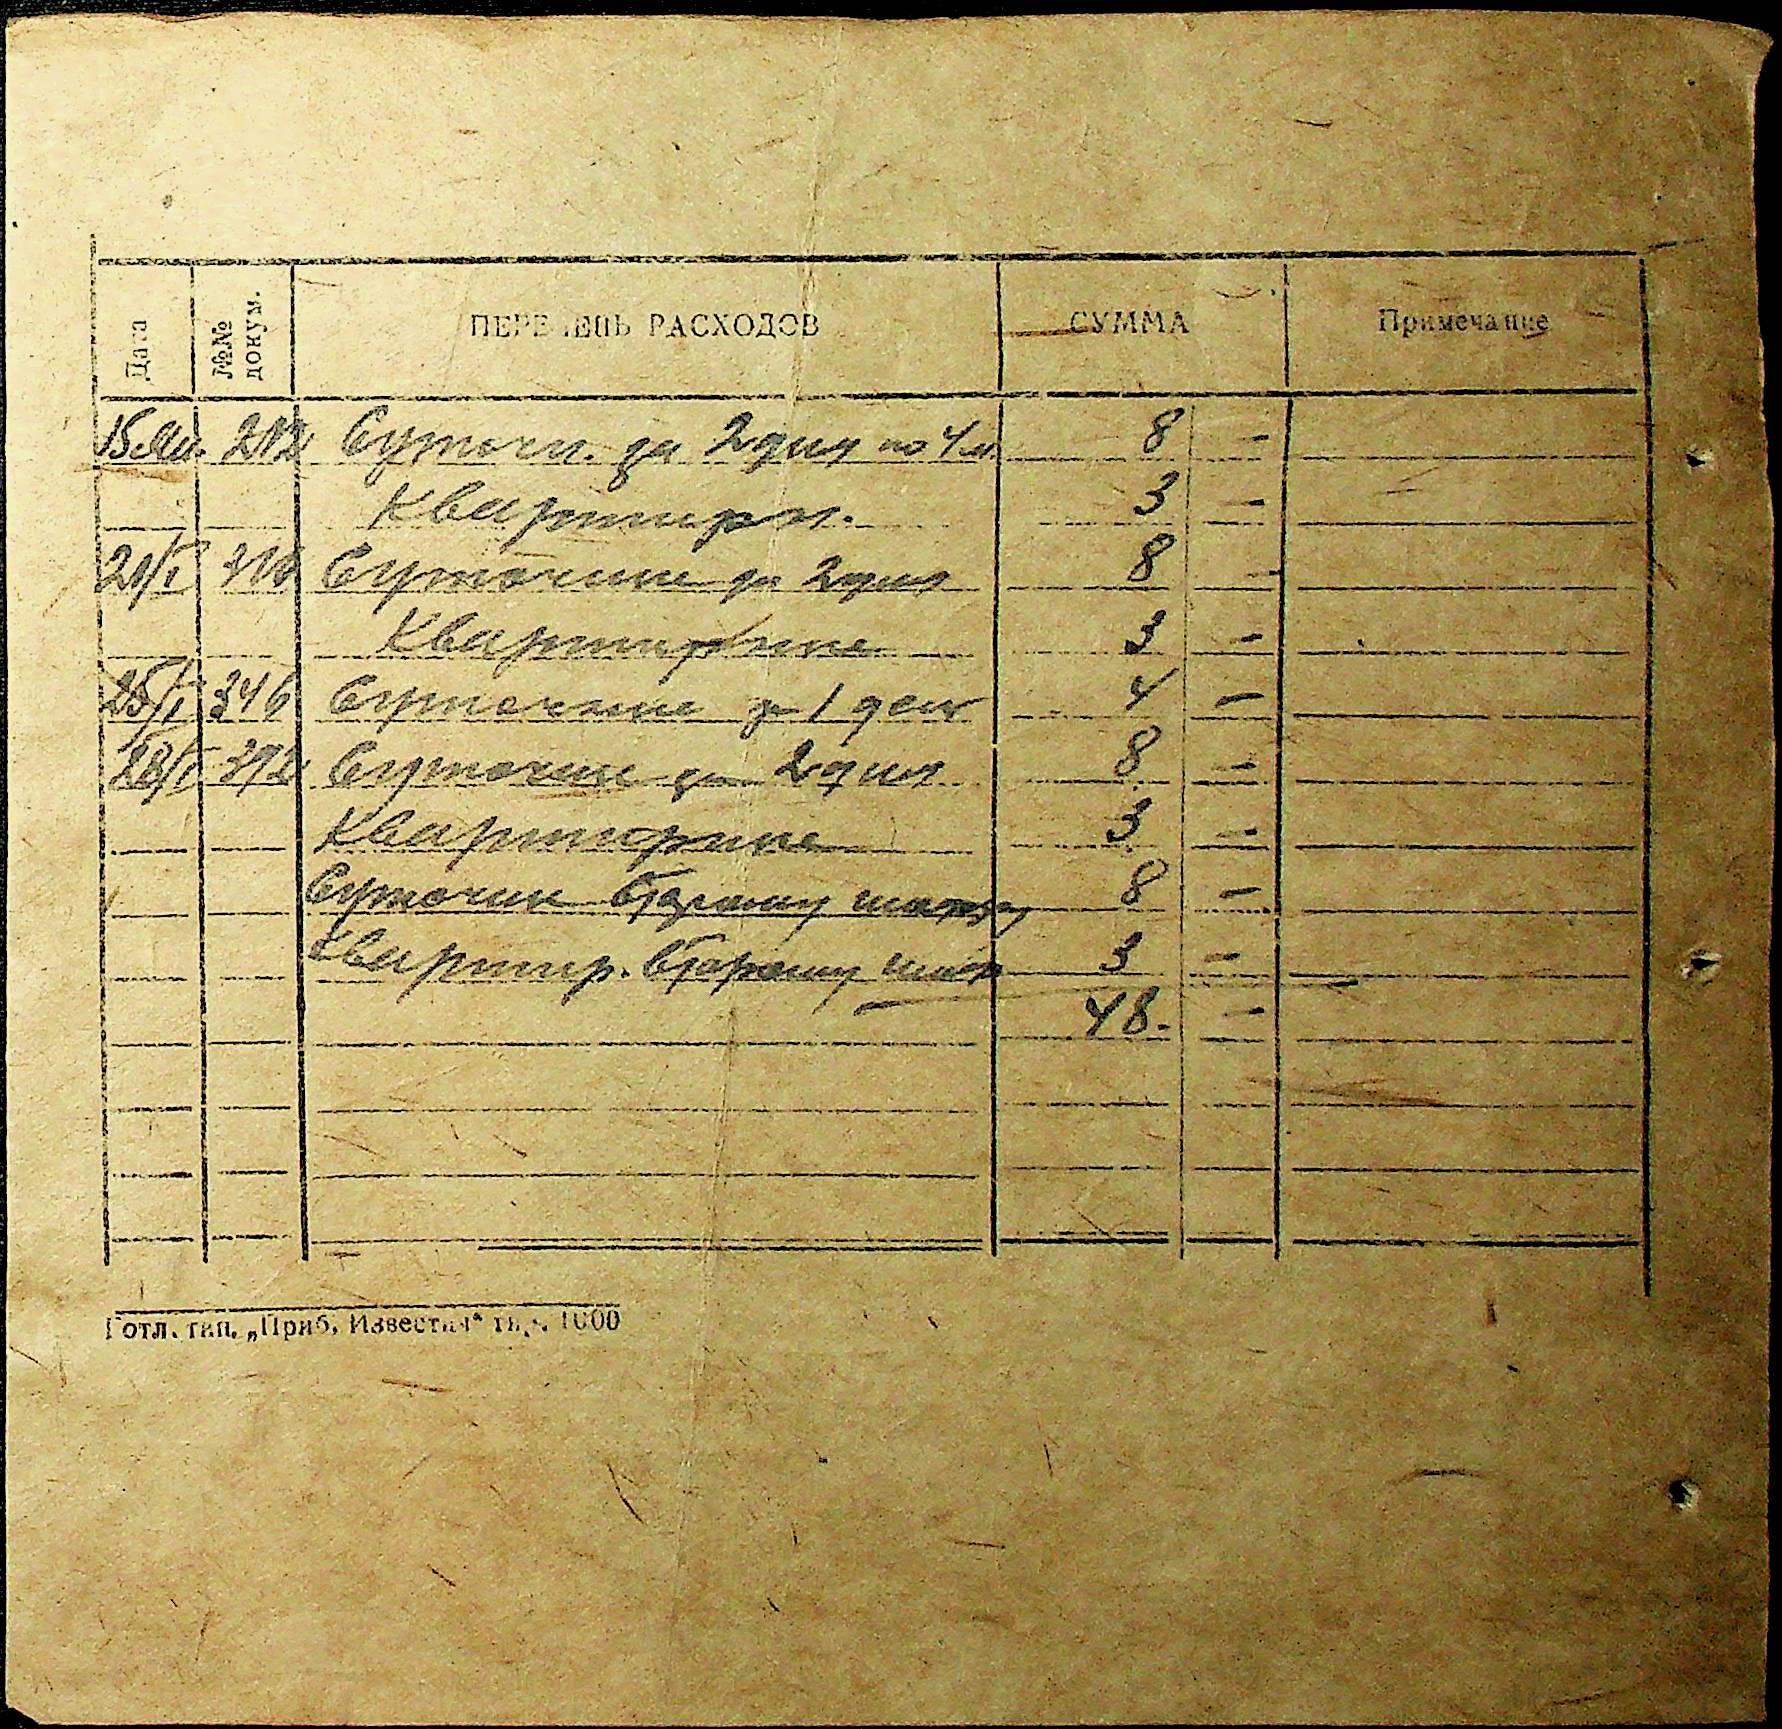 Дата №№ докум. ПЕРЕЧЕНЬ РАСХОДОВ СУММА Примечание
15 Ян. 212 Суточн. за 2 дня по 4 м. 8 -
Квартирн. 3 -
21/I Суточные за 2 дня 8 -
Квартирные 3 -
25/I 346 Суточные за 1 день 4 -
28/I Суточные за 2 дня 8 -
Квартирные 3 -
Суточные 8 -
Квартир. 3 -
48. -
Готл. тип. „Приб. Известия“ тир. 1000